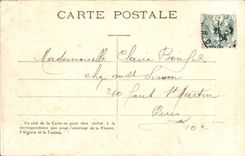 CARTE POSTALE
Mademoiselle Claire
chez Mell Simon
210 Saint Martin
Paris
10e
Ce côté de la Carte ne peut être utilisé à la
correspondance que pour l'intérieur de la France,
l'Algérie et la Tunisie.